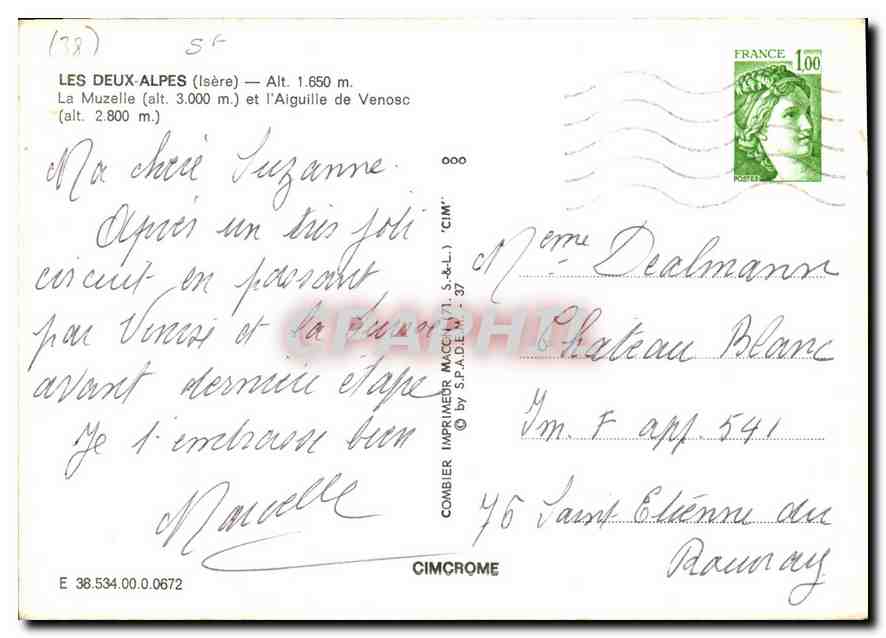 (38) St
LES DEUX-ALPES (Isère) — Alt. 1.650 m.
La Muzelle (alt. 3.000 m.) et l'Aiguille de Venosc
(alt. 2.800 m.)
FRANCE 1,00
POSTES
Ma chère Suzanne.
Après un très joli
circuit en passant
par Venise et la Suisse
avant dernière étape
Je t'embrasse bien
Marcelle
E 38.534.00.0.0672
COMBIER IMPRIMEUR MACON (71. S.-&-L.) "CIM"
© by S.P.A.D.E.M - 37
CIMCROME
CPAPHIL
Meme Dealmann
Château Blanc
Im. F app. 541
76 Saint Etienne du
Rouvray